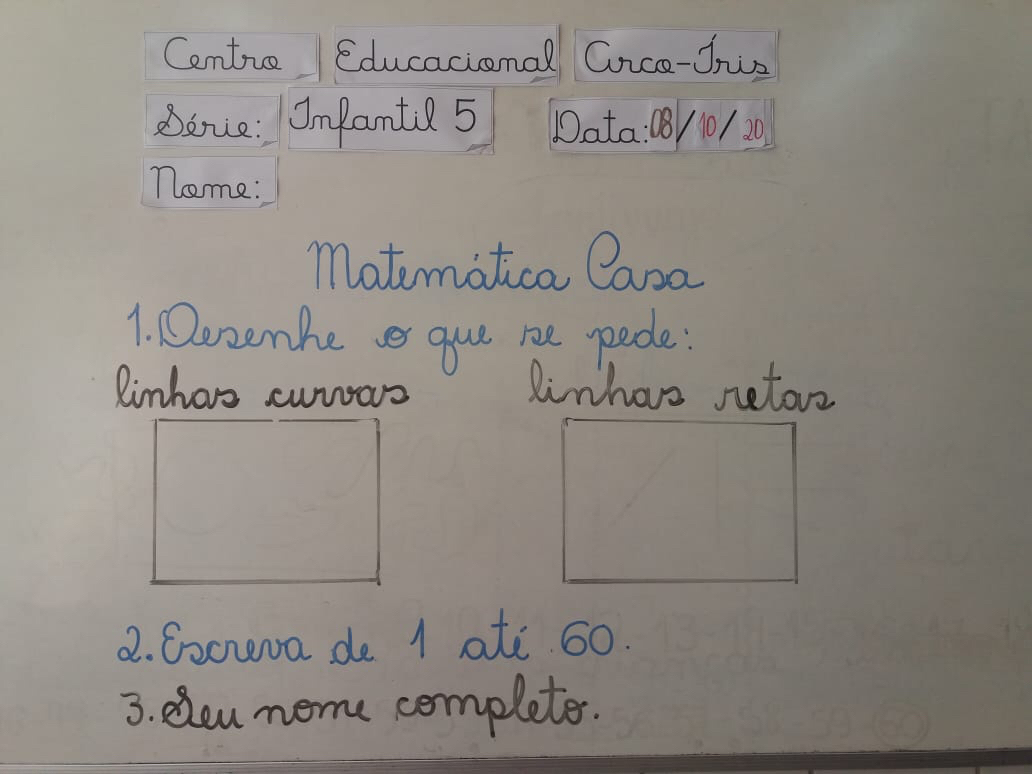 Centro Educacional Arco-Íris
Série: Infantil 5 Data: 08/10/20
Nome:
Matemática Casa
1. Desenhe o que se pede:
linhas curvas linhas retas
2. Escreva de 1 até 60.
3. Seu nome completo.